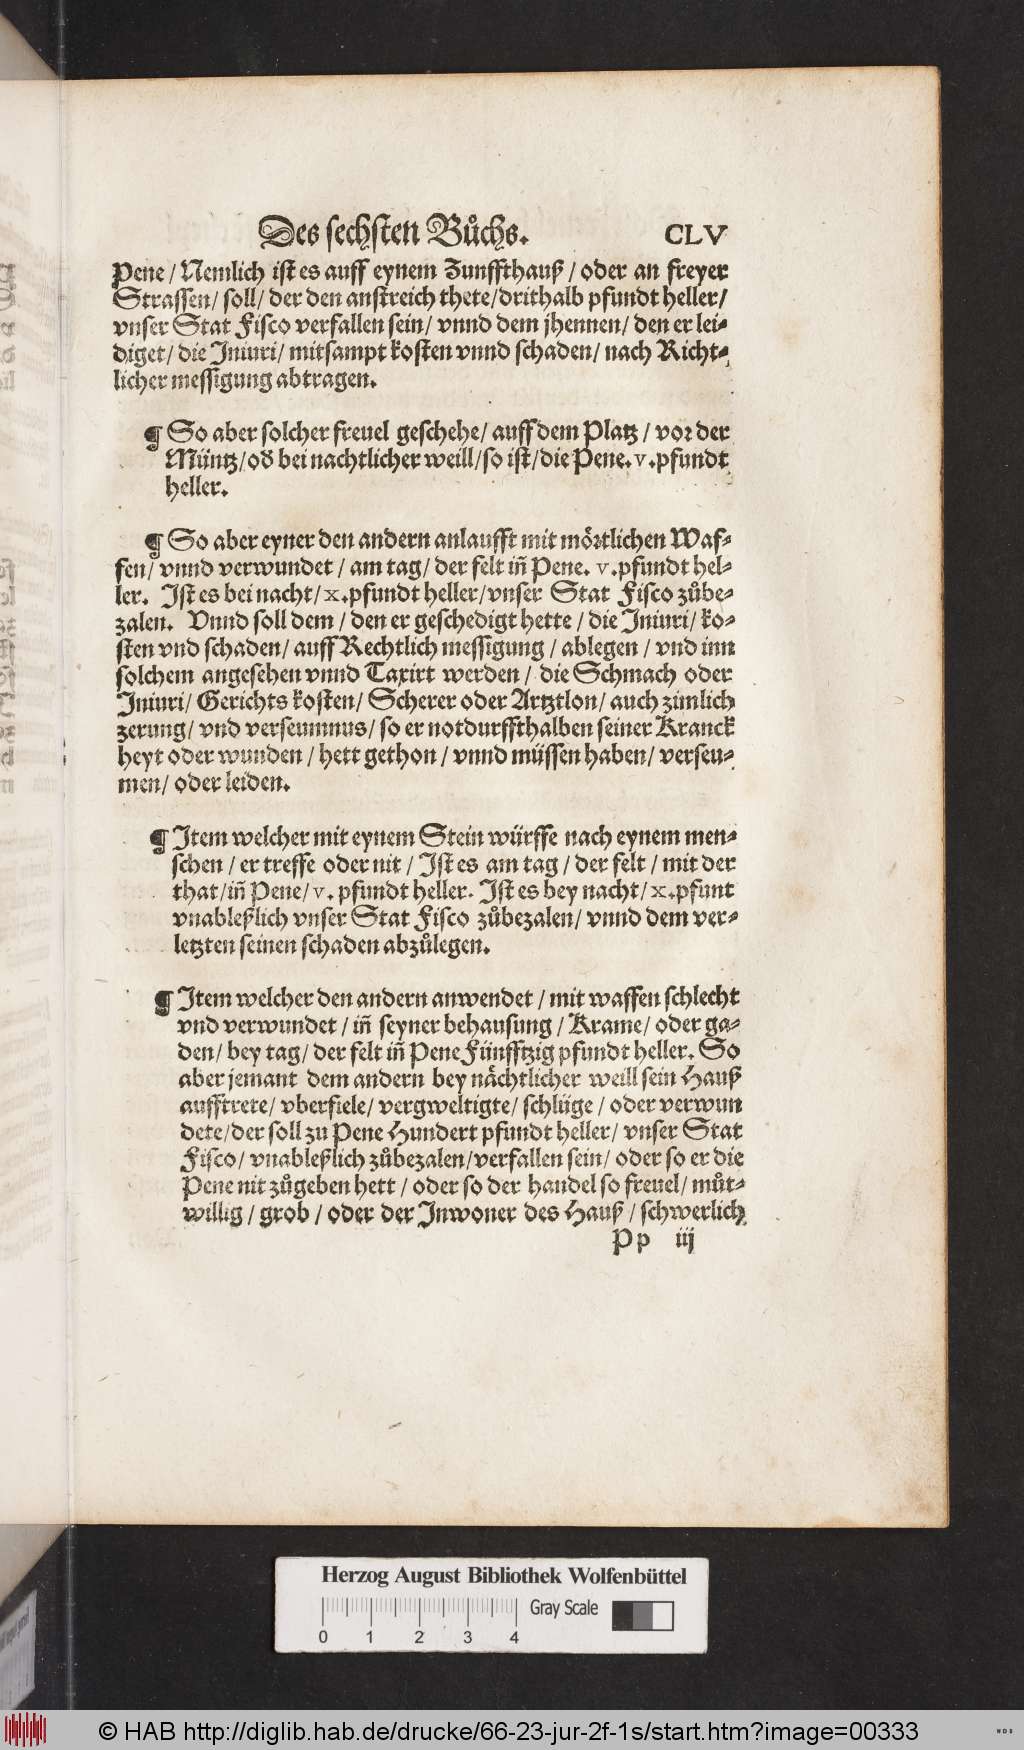 Des sechsten Bůchs. CLV
Pene / Nemlich ist es auff eynem Zunffthauß / oder an freyer
Strassen / soll / der den anstreich thete / drithalb pfundt heller /
vnser Stat Fisco verfallen sein / vnnd dem jhennen / den er lei-
diget / die Iniuri / mitsampt kosten vnnd schaden / nach Richt-
licher messigung abtragen.
¶ So aber solcher freuel geschehe / auff dem Platz / vor der
Müntz / oď bei nachtlicher weill / so ist / die Pene. v. pfundt
heller.
¶ So aber eyner den andern anlaufft mit mörtlichen Waf-
fen / vnnd verwundet / am tag / der felt in̄ Pene. v. pfundt hel-
ler. Ist es bei nacht / x. pfundt heller / vnser Stat Fisco zůbe-
zalen. Vnnd soll dem / den er geschedigt hette / die Iniuri / ko-
sten vnd schaden / auff Rechtlich messigung / ablegen / vnd inn
solchem angesehen vnnd Taxirt werden / die Schmach oder
Iniuri / Gerichts kosten / Scherer oder Artztlon / auch zimlich
zerung / vnd verseumnus / so er notdurffthalben seiner Kranck
heyt oder wunden / hett gethon / vnnd müssen haben / verseu-
men / oder leiden.
¶ Item welcher mit eynem Stein würffe nach eynem men-
schen / er treffe oder nit / Ist es am tag / der felt / mit der
that / in̄ Pene / v. pfundt heller. Ist es bey nacht / x. pfunt
vnableßlich vnser Stat Fisco zůbezalen / vnnd dem ver-
letzten seinen schaden abzůlegen.
¶ Item welcher den andern anwendet / mit waffen schlecht
vnd verwundet / in̄ seyner behausung / Krame / oder ga-
den / bey tag / der felt in̄ Pene Fünfftzig pfundt heller. So
aber jemant dem andern bey nächtlicher weill sein Hauß
aufftrete / vberfiele / vergweltigte / schlüge / oder verwun
dete / der soll zu Pene Hundert pfundt heller / vnser Stat
Fisco / vnableßlich zůbezalen / verfallen sein / oder so er die
Pene nit zůgeben hett / oder so der handel so freuel / můt-
willig / grob / oder der Inwoner des Hauß / schwerlich
Pp iij
Herzog August Bibliothek Wolfenbüttel
Gray Scale
0 1 2 3 4
© HAB http://diglib.hab.de/drucke/66-23-jur-2f-1s/start.htm?image=00333